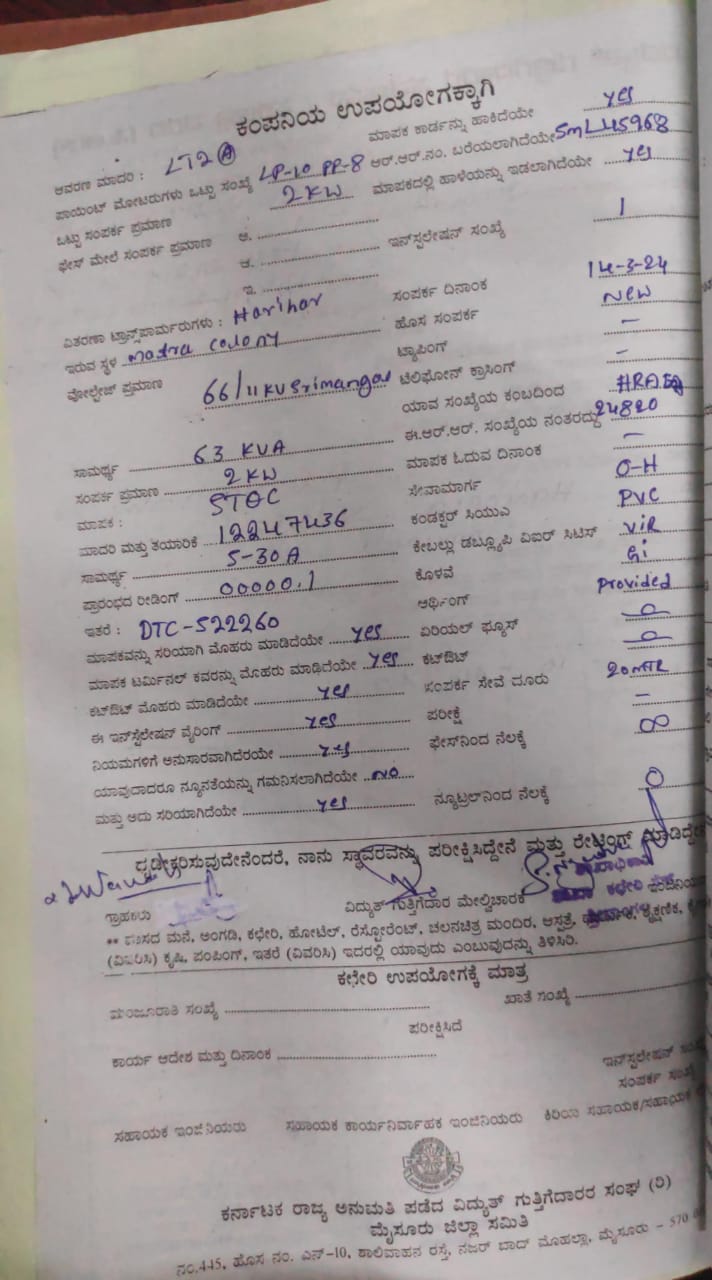 ಕಂಪನಿಯ ಉಪಯೋಗಕ್ಕಾಗಿ
ಆವರಣ ಮಾದರಿ : LT2 A ಮಾಪಕ ಕಾರ್ಡನ್ನು ಹಾಕಿದೆಯೇ yes
ಪಾಯಿಂಟ್ ಮೋಟರುಗಳು ಒಟ್ಟು ಸಂಖ್ಯೆ LP-10 PP-8 ಆರ್.ಆರ್.ನಂ. ಬರೆಯಲಾಗಿದೆಯೇ SML45968
ಒಟ್ಟು ಸಂಪರ್ಕ ಪ್ರಮಾಣ 2KW ಮಾಪಕದಲ್ಲಿ ಹಾಳೆಯನ್ನು ಇಡಲಾಗಿದೆಯೇ yes
ಫೇಸ್ ಮೇಲೆ ಸಂಪರ್ಕ ಪ್ರಮಾಣ ಅ. ....................
ಆ. .................... ಇನ್‌ಸ್ಪಲೇಷನ್ ಸಂಖ್ಯೆ 1
ಇ. ....................
ವಿತರಣಾ ಟ್ರಾನ್ಸ್‌ಪಾರ್ಮರುಗಳು : Harihar ಸಂಪರ್ಕ ದಿನಾಂಕ 14-3-24
ಇರುವ ಸ್ಥಳ colony ಹೊಸ ಸಂಪರ್ಕ New
ವೋಲ್ಟೇಜ್ ಪ್ರಮಾಣ 66/11KV Srimangal ಟ್ಯಾಪಿಂಗ್ –
ಟೆಲಿಫೋನ್ ಕ್ರಾಸಿಂಗ್ –
ಯಾವ ಸಂಖ್ಯೆಯ ಕಂಬದಿಂದ
ಸಾಮರ್ಥ್ಯ 63 KVA ಈ.ಆರ್.ಆರ್. ಸಂಖ್ಯೆಯ ನಂತರದ್ದು 24820
ಸಂಪರ್ಕ ಪ್ರಮಾಣ 2KW ಮಾಪಕ ಓದುವ ದಿನಾಂಕ –
ಮಾಪಕ : ಸೇವಾಮಾರ್ಗ O-H
ಮಾದರಿ ಮತ್ತು ತಯಾರಿಕೆ 12247436 ಕಂಡಕ್ಟರ್ ಸಿಯುವಿ PVC
ಸಾಮರ್ಥ್ಯ 5-30A ಕೇಬಲ್ಲು ಡಬ್ಲ್ಯೂಪಿ ವಿಐರ್ ಸಿಟಿಸ್ VIR
ಪ್ರಾರಂಭದ ರೀಡಿಂಗ್ 00000.1 ಕೊಳವೆ Gi
ಇತರೆ : DTC-522260 ಅರ್ಥಿಂಗ್ Provided
ಮಾಪಕವನ್ನು ಸರಿಯಾಗಿ ಮೊಹರು ಮಾಡಿದೆಯೇ yes ಏರಿಯಲ್ ಫ್ಯೂಸ್
ಮಾಪಕ ಟರ್ಮಿನಲ್ ಕವರನ್ನು ಮೊಹರು ಮಾಡಿದೆಯೇ yes ಕಟ್‌ಔಟ್
ಕಟ್‌ಔಟ್ ಮೊಹರು ಮಾಡಿದೆಯೇ yes ಸಂಪರ್ಕ ಸೇವೆ ದೂರು 20 MTR
ಈ ಇನ್‌ಸ್ಟಲೇಷನ್ ವೈರಿಂಗ್ yes ಪರೀಕ್ಷೆ –
ನಿಯಮಗಳಿಗೆ ಅನುಸಾರವಾಗಿದೆರಯೇ yes ಫೇಸ್‌ನಿಂದ ನೆಲಕ್ಕೆ ∞
ಯಾವುದಾದರೂ ನ್ಯೂನತೆಯನ್ನು ಗಮನಿಸಲಾಗಿದೆಯೇ NO
ಮತ್ತು ಅದು ಸರಿಯಾಗಿದೆಯೇ yes ನ್ಯೂಟ್ರಲ್‌ನಿಂದ ನೆಲಕ್ಕೆ 0
ದೃಢೀಕರಿಸುವುದೇನೆಂದರೆ, ನಾನು ಸ್ಥಾವರವನ್ನು ಪರೀಕ್ಷಿಸಿದ್ದೇನೆ ಮತ್ತು ರೇಟಿಂಗ್ ಮಾಡಿದ್ದೇನೆ
ಗ್ರಾಹಕರು ವಿದ್ಯುತ್ ಗುತ್ತಿಗೆದಾರ ಮೇಲ್ವಿಚಾರಕ
** ವಾಸದ ಮನೆ, ಅಂಗಡಿ, ಕಛೇರಿ, ಹೋಟೆಲ್, ರೆಸ್ಟೋರೆಂಟ್, ಚಲನಚಿತ್ರ ಮಂದಿರ, ಆಸ್ಪತ್ರೆ, ಶೈಕ್ಷಣಿಕ,
(ವಿವರಿಸಿ) ಕೃಷಿ, ಪಂಪಿಂಗ್, ಇತರೆ (ವಿವರಿಸಿ) ಇದರಲ್ಲಿ ಯಾವುದು ಎಂಬುವುದನ್ನು ತಿಳಿಸಿರಿ.
ಕಛೇರಿ ಉಪಯೋಗಕ್ಕೆ ಮಾತ್ರ
ಮಂಜೂರಾತಿ ಸಂಖ್ಯೆ .................... ಖಾತೆ ಸಂಖ್ಯೆ ....................
ಪರೀಕ್ಷಿಸಿದೆ
ಕಾರ್ಯ ಆದೇಶ ಮತ್ತು ದಿನಾಂಕ ....................
ಇನ್‌ಸ್ಪಲೇಷನ್
ಸಂಪರ್ಕ
ಸಹಾಯಕ ಇಂಜಿನಿಯರು ಸಹಾಯಕ ಕಾರ್ಯನಿರ್ವಾಹಕ ಇಂಜಿನಿಯರು ಕಿರಿಯ ಸಹಾಯಕ/ಸಹಾಯಕ
ಕರ್ನಾಟಕ ರಾಜ್ಯ ಅನುಮತಿ ಪಡೆದ ವಿದ್ಯುತ್ ಗುತ್ತಿಗೆದಾರರ ಸಂಘ (ರಿ)
ಮೈಸೂರು ಜಿಲ್ಲಾ ಸಮಿತಿ
ನಂ.445, ಹೊಸ ನಂ. ಎನ್-10, ಶಾಲಿವಾಹನ ರಸ್ತೆ, ನಜರ್ ಬಾದ್ ಮೊಹಲ್ಲಾ, ಮೈಸೂರು – 570